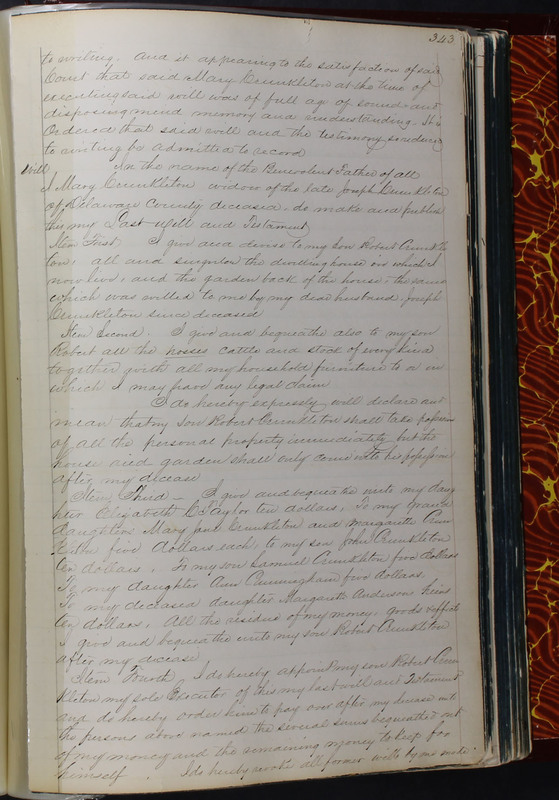 343
to writing. And it appearing to the satisfaction of said
Court that said Mary Crunkleton at the time of
executing said will was of full age of sound and
disposing mind memory and understanding. It is
Ordered that said will and the testimony reduced
to writing be admitted to record
Will In the name of the Benevolent Father of all
I Mary Crunkleton widow of the late Joseph Crunkleton
of Delaware County deceased. do make and publish
this my Last will and Testament
Item First I give and devise to my son Robert Crunkle
ton, all and singular the dwelling house in which I
now live, and the garden back of the house, the same
which was willed to me by my dear husband Joseph
Crunkleton since deceased
Item Second. I give and bequeathe also to my son
Robert all the hosses cattle and stock of every kind
together with all my household furniture to or in
which I may have any legal claim
I do hereby expressly will declare and
mean that my son Robert Crunkleton shall take possession
of all the personal property immediately but the
house and garden shall only come into his possession
after my decease
Item Third – I give and bequeathe unto my daug
hter Elizabeth Taylor ten dollars, To my grand
daughters Mary Jane Crunkleton and Margarette Crun
kelton five dollars each, to my son John Crunkleton
ten dollars, To my son Samuel Crunkleton five dollars
To my daughter Ann Cunningham five dollars,
To my deceased daughter Margarett Anderson heirs
ten dollars, All the residue of my money, goods & effects
I give and bequeathe unto my son Robert Crunkleton
after my decease
Item Fourth I do hereby appoint my son Robert Crun
kleton my sole Executor of this my last will and Testament
and do hereby order him to pay over after my decease unto
the persons above named the several sums bequeathed out
of my money and the remaining money to keep for
himself. I do hereby revoke all former wills by me made